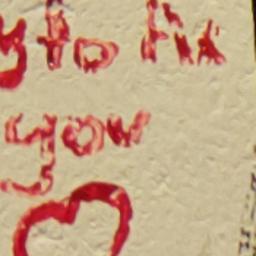 y to fix
your